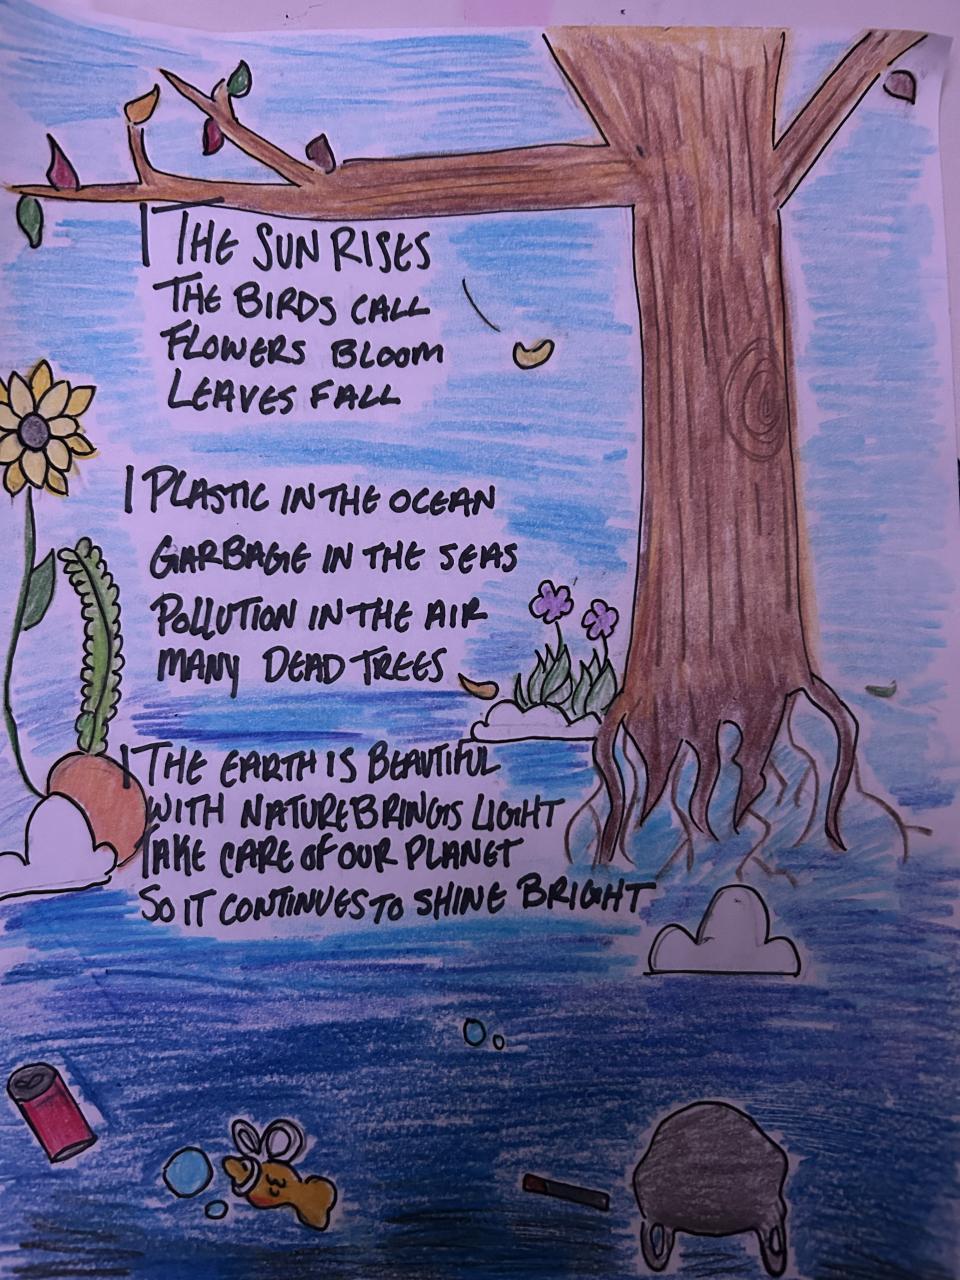 THE SUN RISES
THE BIRDS CALL
FLOWERS BLOOM
LEAVES FALL
PLASTIC IN THE OCEAN
GARBAGE IN THE SEAS
POLLUTION IN THE AIR
MANY DEAD TREES
THE EARTH IS BEAUTIFUL
WITH NATURE BRINGS LIGHT
TAKE CARE OF OUR PLANET
SO IT CONTINUES TO SHINE BRIGHT